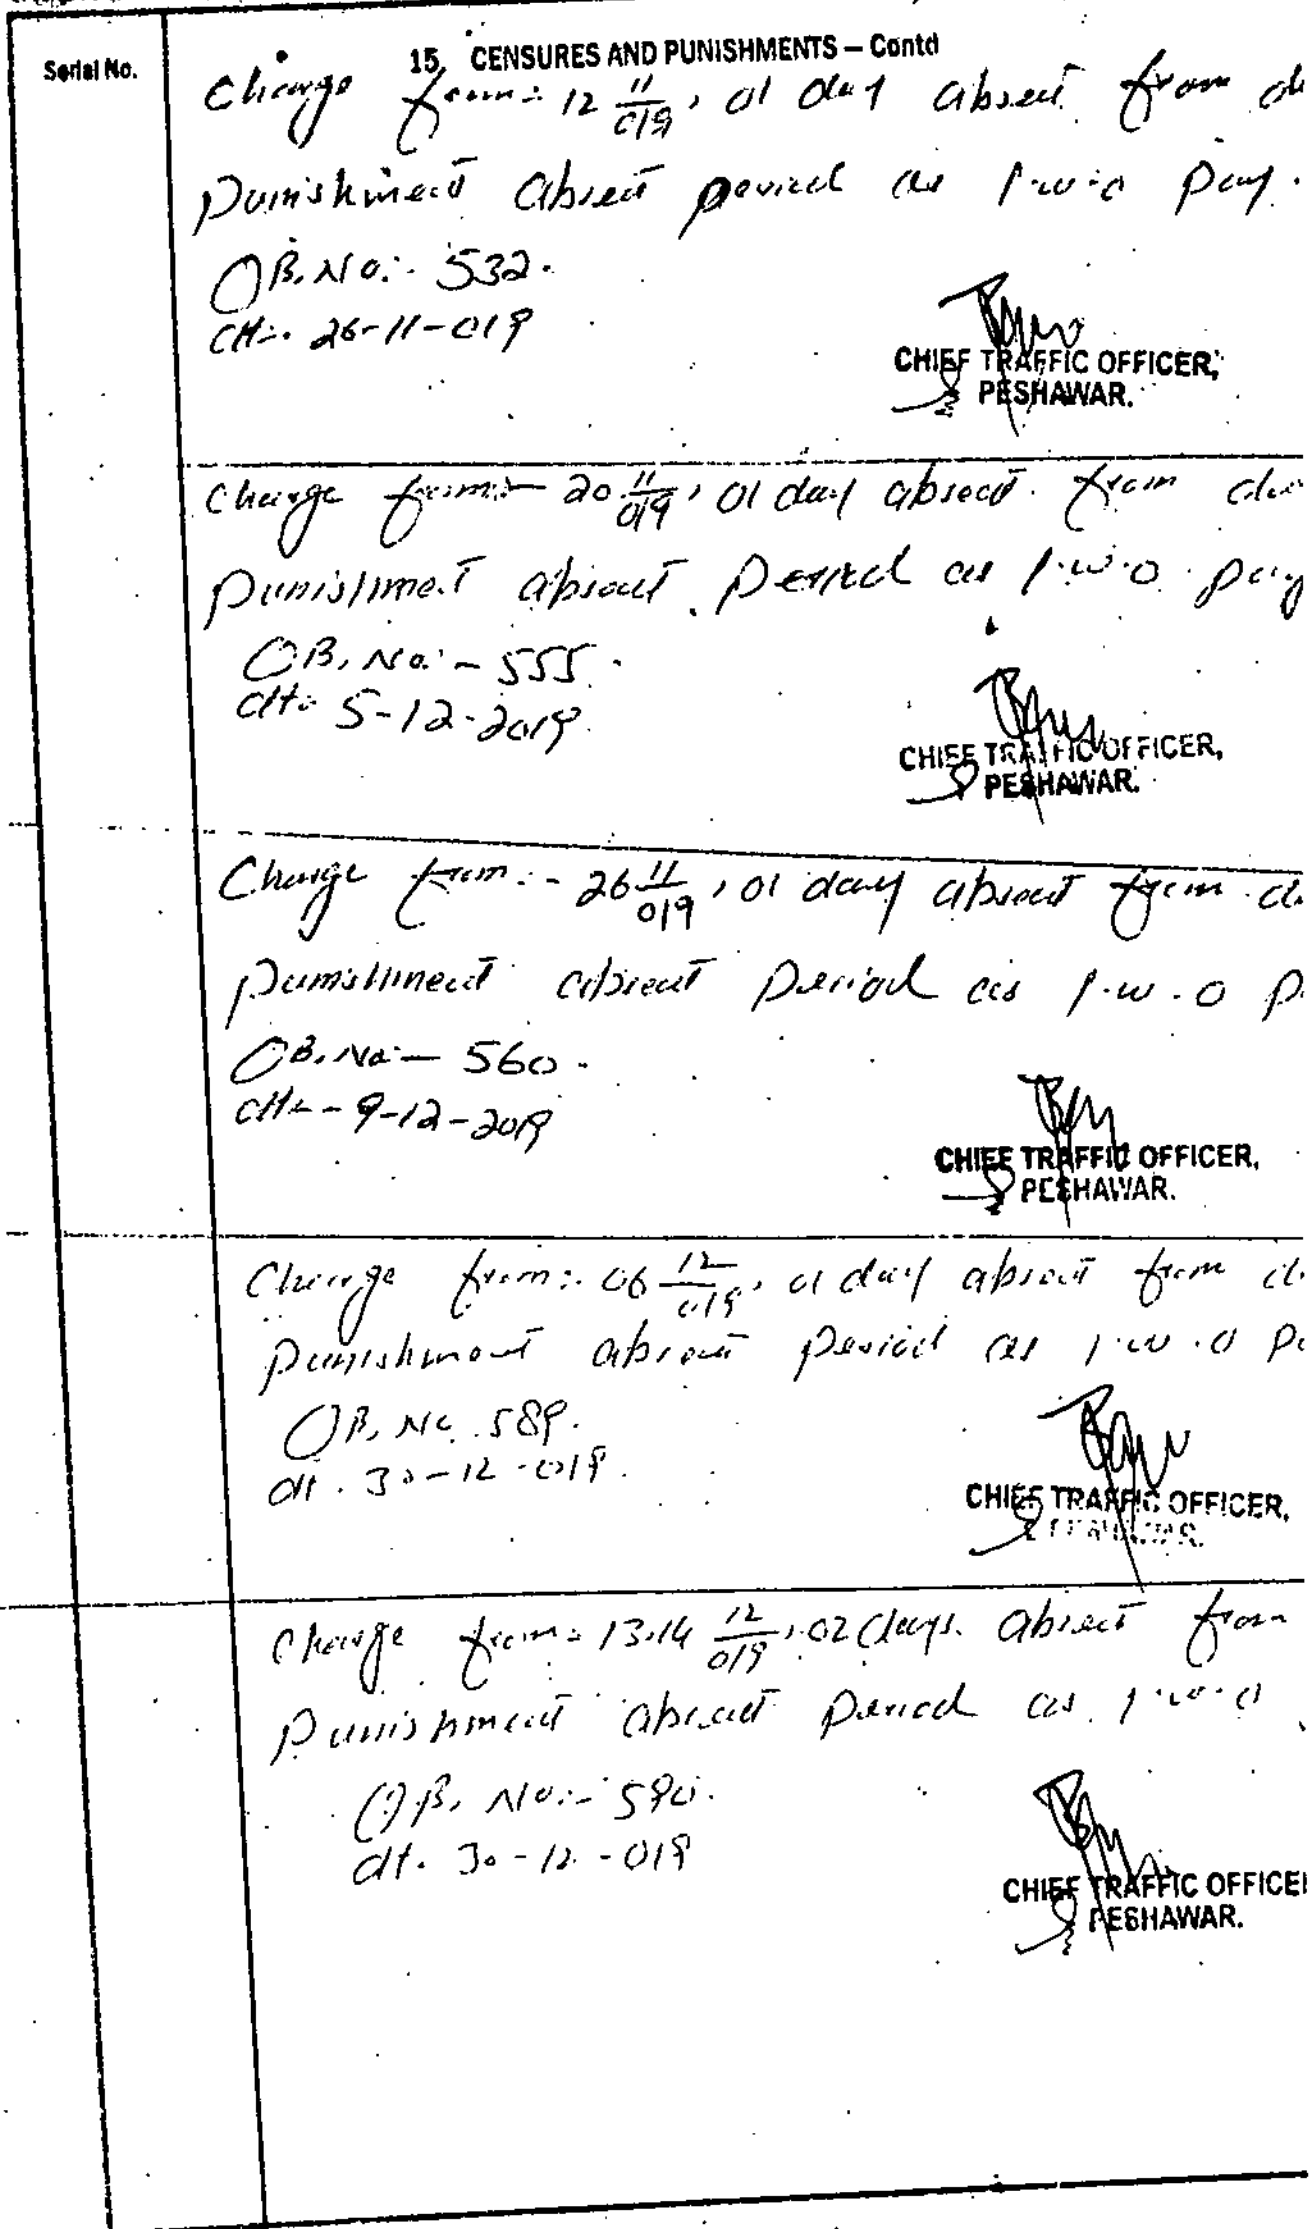 Serial No.
15. CENSURES AND PUNISHMENTS – Contd
Charge from:- 12 11/019, 01 day absent from
punishment absent period as l.w.o pay.
OB. No:- 532.
dt:- 26-11-019
CHIEF TRAFFIC OFFICER,
PESHAWAR.
Charge from:- 20 11/019, 01 day absent from
punishment absent period as l.w.o pay
OB. No:- 555.
dt:- 5-12-2019.
CHIEF TRAFFIC OFFICER,
PESHAWAR.
Charge from:- 26 11/019, 01 day absent from
punishment absent period as l.w.o
OB. No:- 560.
dt:- 9-12-2019
CHIEF TRAFFIC OFFICER,
PESHAWAR.
Charge from:- 06 12/019, 01 day absent from
punishment absent period as l.w.o
OB. No. 589.
dt. 30-12-019.
CHIEF TRAFFIC OFFICER,
PESHAWAR.
Charge from:- 13.14 12/019, 02 days. absent from
punishment absent period as l.w.o
OB. No:- 590.
dt. 30-12-019
CHIEF TRAFFIC OFFICE
PESHAWAR.